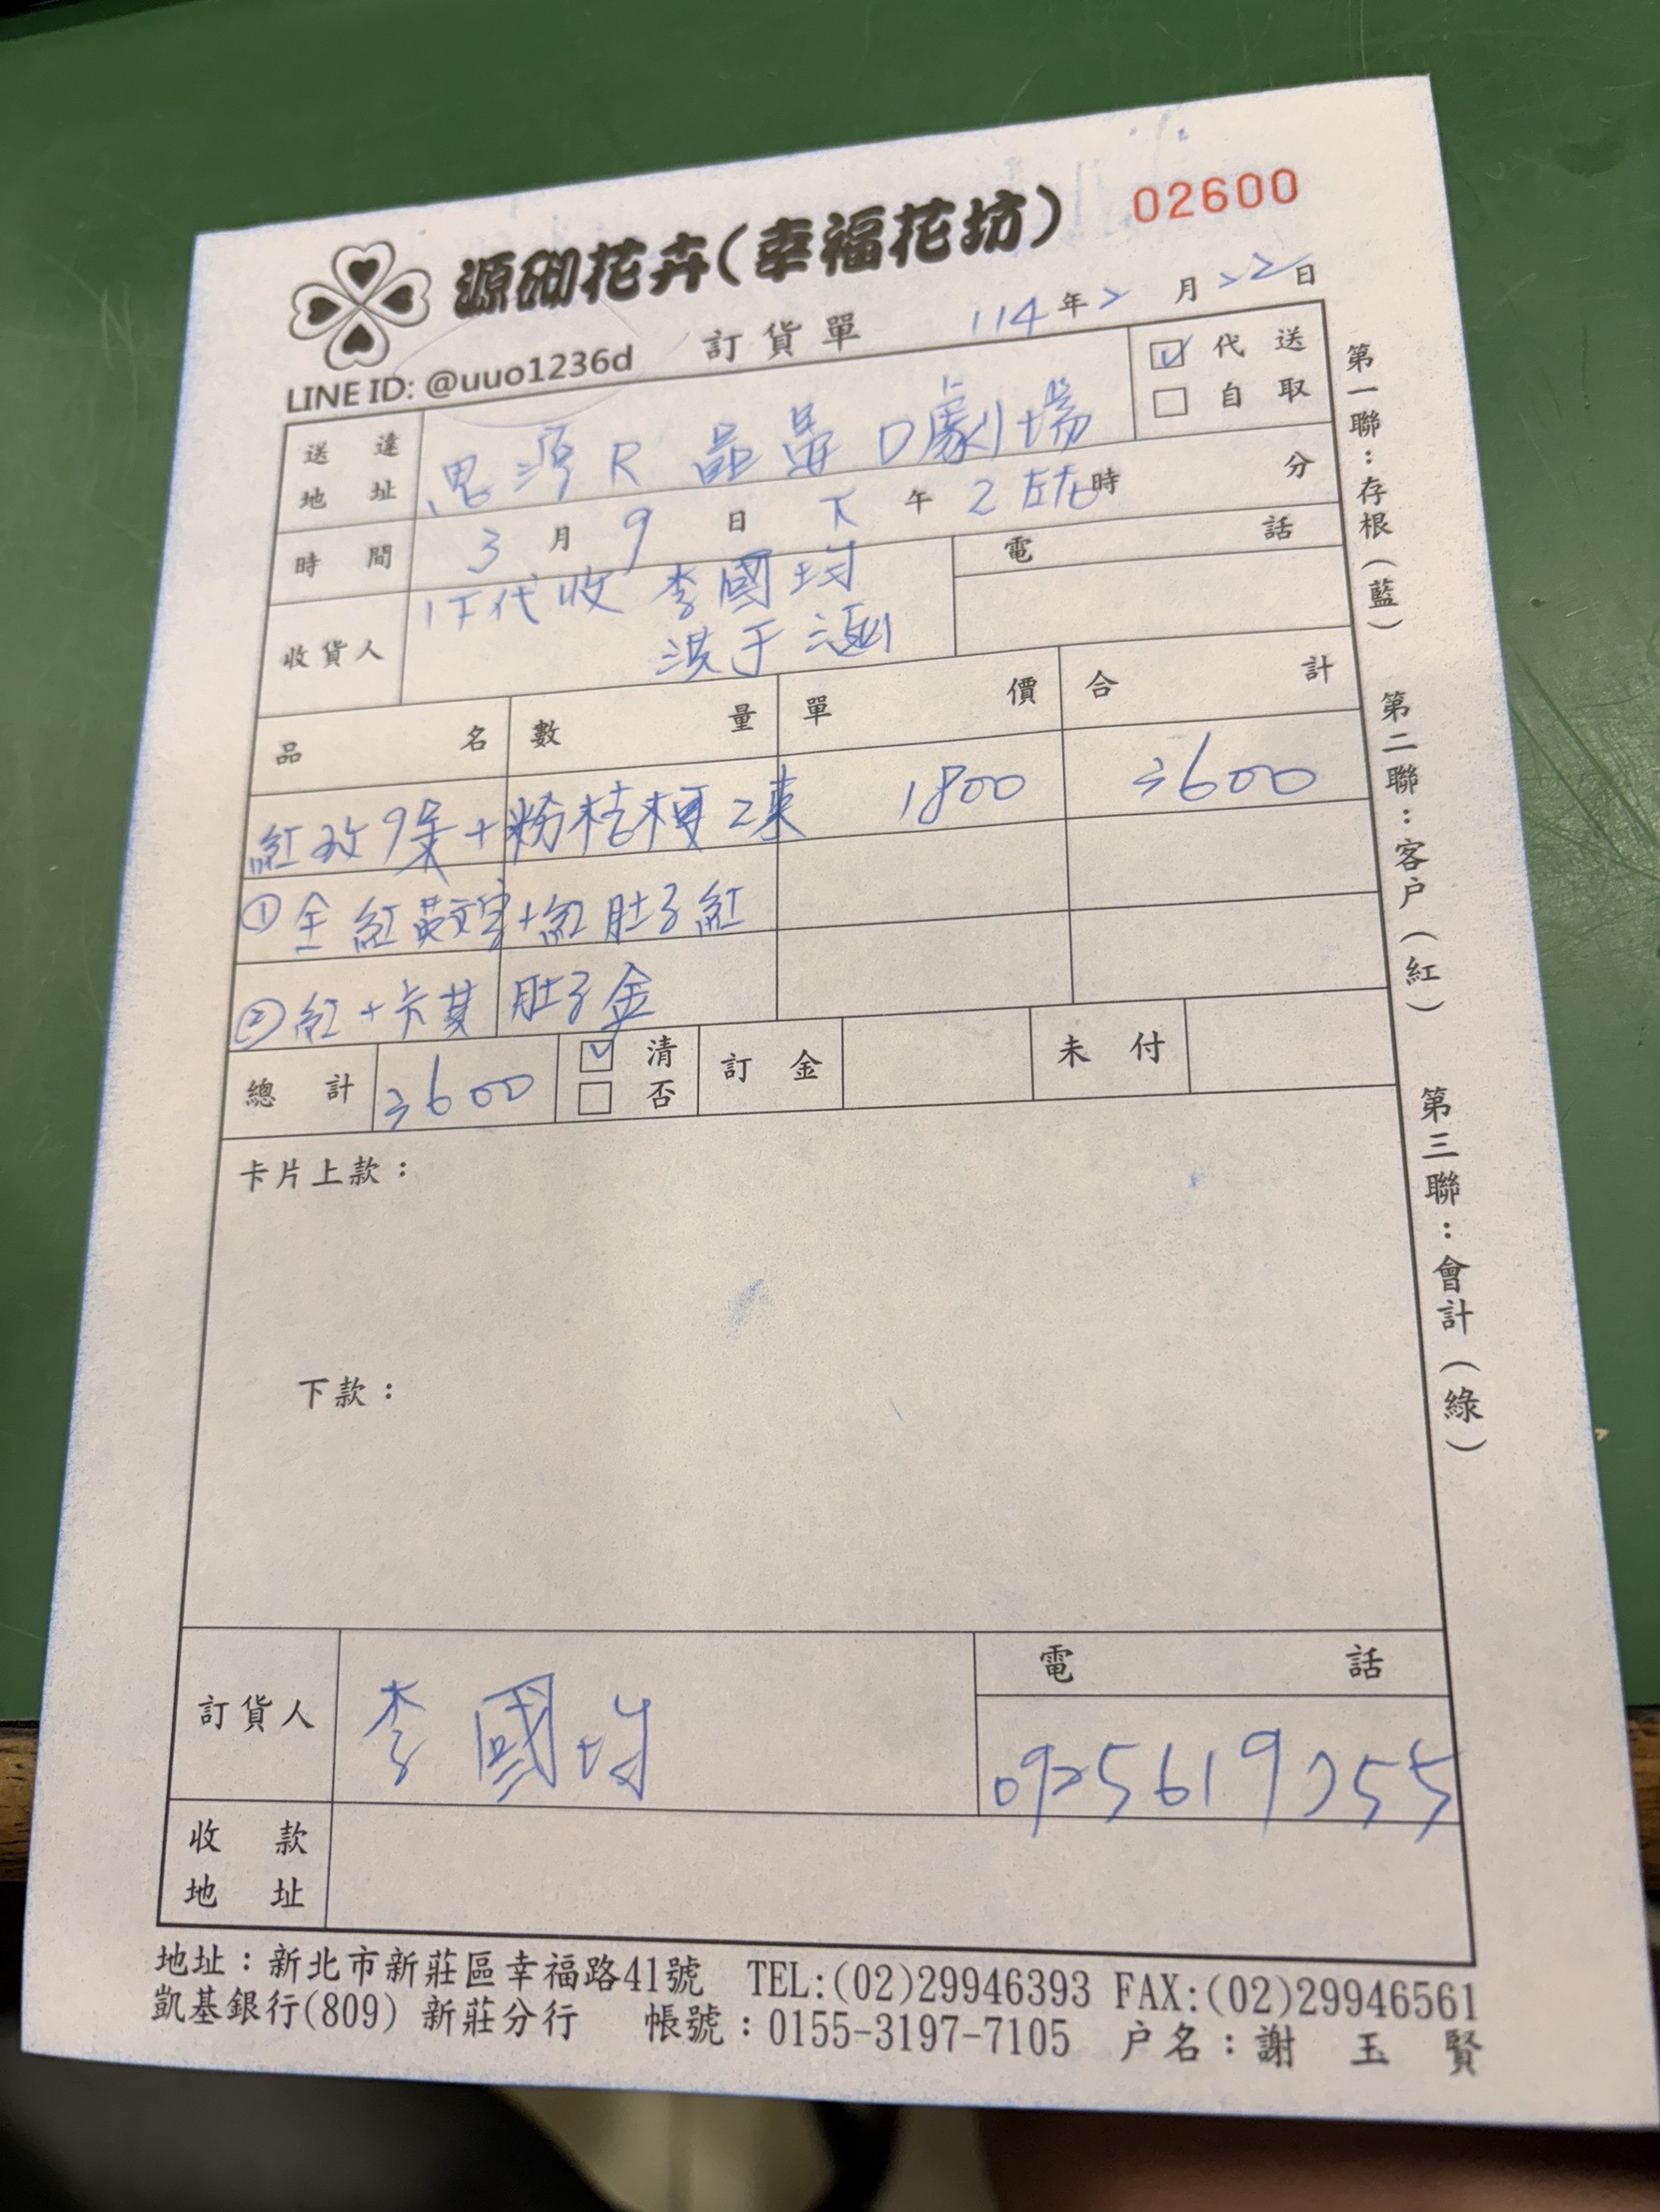 源砌花卉(幸福花坊) 02600
訂貨單 114年2月22日
LINE ID: @uuo1236d
☑代送
☐自取
送達地址 思源R 晶宴 D劇場
時間 3月9日下午2左右時 分
收貨人 1F代收 李國均
洪于涵
電話
品名 數量 單價 合計
紅玫9朵+粉桔梗2束 1800 3600
①全紅英文字+紅肚子紅
②紅+卡其 肚子金
總計 3600 ☑清 ☐否 訂金 未付
卡片上款:
下款:
訂貨人 李國均
電話
0925619755
收款地址
地址:新北市新莊區幸福路41號 TEL:(02)29946393 FAX:(02)29946561
凱基銀行(809) 新莊分行 帳號:0155-3197-7105 户名:謝玉賢
第一聯:存根(藍) 第二聯:客户(紅) 第三聯:會計(綠)